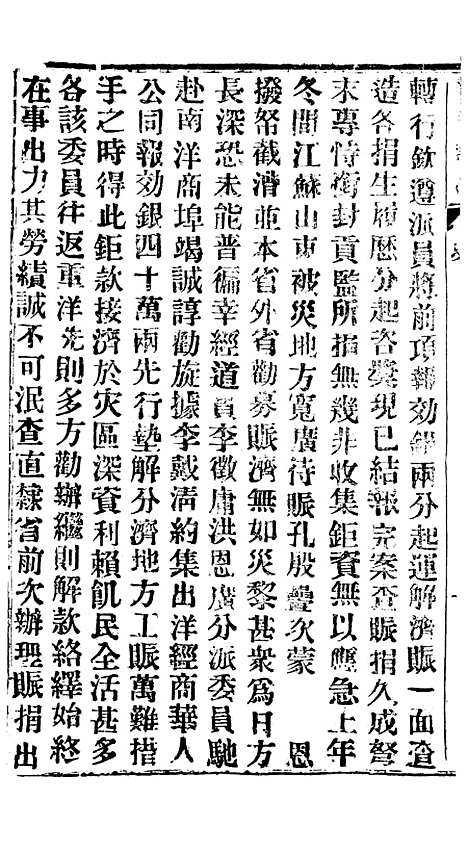 轉行欽遵派員將前項報効銀兩分起運解濟賑一面查
造各捐生履歷分起咨奬現已結報完案查賑捐久成弩
末專恃銜封貢監所捐無幾非收集鉅資無以應急上年
冬間江蘇山東被災地方寬廣待賑孔殷疊次蒙 恩
撥帑截漕並本省外省勸募賑濟無如災黎甚衆爲日方
長深恐未能普徧幸經道員李徵庸洪恩廣分派委員馳
赴南洋商埠竭誠諄勸旋據李戴淸約集出洋經商華人
公同報効銀四十萬兩先行墊解分濟地方工賑萬難措
手之時得此鉅款接濟於災區深資利賴飢民全活甚多
各該委員往返重洋先則多方勸辦繼則解款絡繹始終
在事出力其勞績誠不可泯查直隸省前次辦理賑捐出